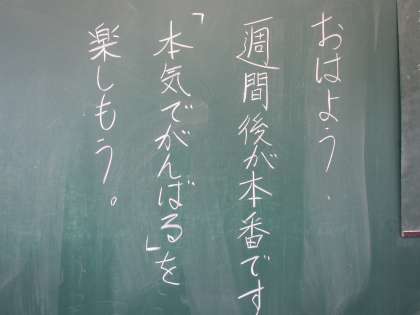 おはよう.
一週間後が本番です
「本気でがんばる」を
楽しもう。